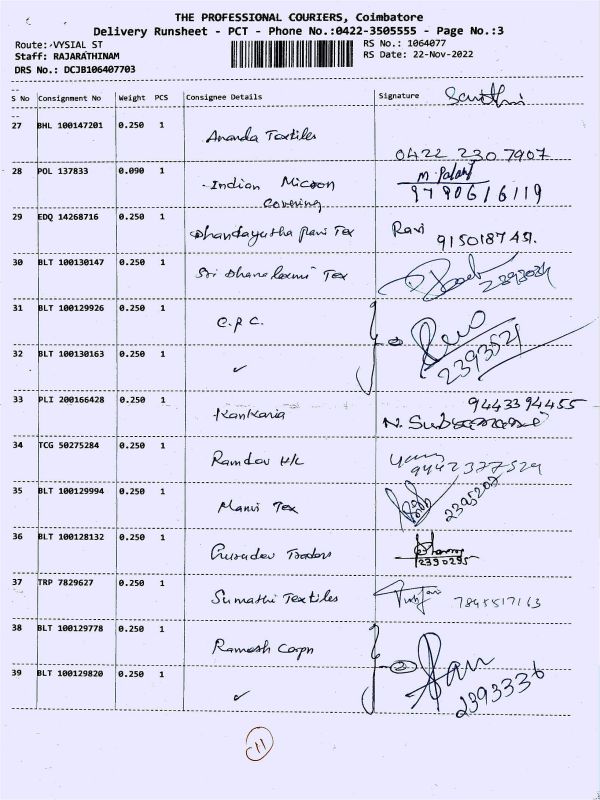 THE PROFESSIONAL COURIERS, Coimbatore
Delivery Runsheet - PCT - Phone No.:0422-3505555 - Page No.:3
Route: VYSIAL ST RS No.: 1064077
Staff: RAJARATHINAM RS Date: 22-Nov-2022
DRS No.: DCJB106407703
S No Consignment No Weight PCS Consignee Details Signature
27 BHL 100147201 0.250 1 Ananda Textiles 0422 230 7907
28 POL 137833 0.090 1 Indian Micron M. Palani
Covering 9790616119
29 EDQ 14268716 0.250 1 Dhandayutha pani Tex Ravi
30 BLT 100130147 0.250 1 Sri Dhanalaxmi Tex
31 BLT 100129926 0.250 1 C.P.C. 2
32 BLT 100130163 0.250 1 ✓ 2393521
33 PLI 200166428 0.250 1 Kankaria 9443394455
34 TCG 50275284 0.250 1 Ramdev H/L 9442377529
35 BLT 100129994 0.250 1 Manvi Tex 2395207
36 BLT 100128132 0.250 1 Gurudev Traders 2390295
37 TRP 7829627 0.250 1 Sumathi Textiles 7845517163
38 BLT 100129778 0.250 1 Ramesh Corpn 2
39 BLT 100129820 0.250 1 ✓ 2393336
11